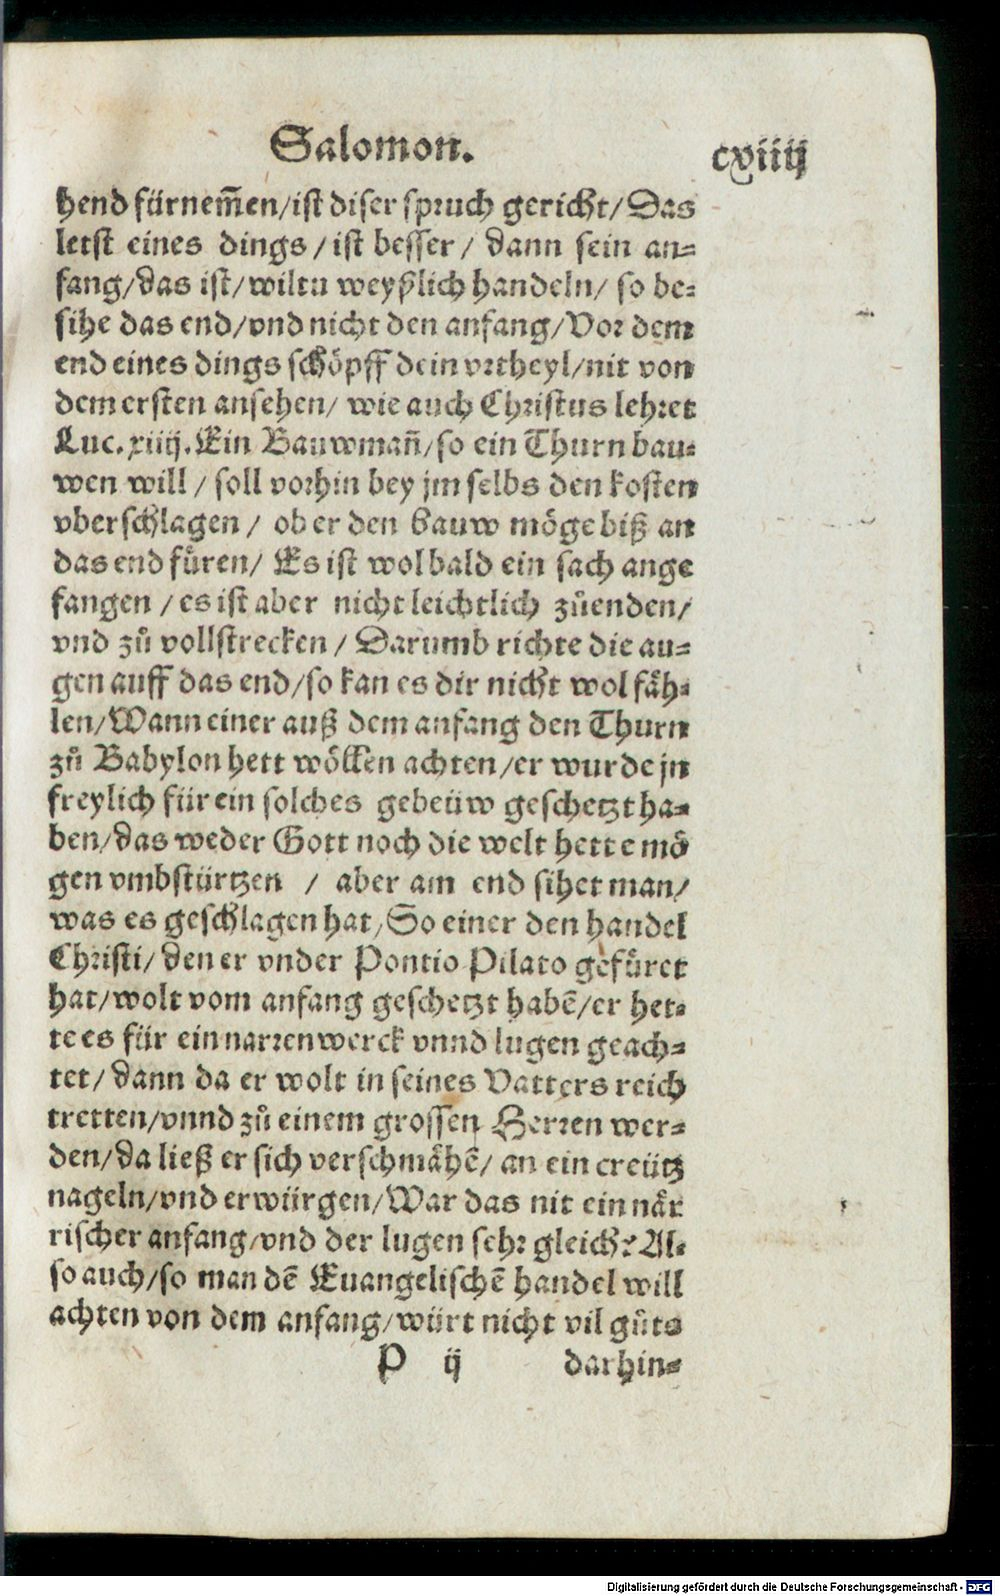 Salomon.
cxiiij
hend fürnem̃en/ist diser spruch gericht/Das
letst eines dings/ist besser/ dann sein an-
fang/das ist/wiltu weyßlich handeln/ so be-
sihe das end/vnd nicht den anfang/Vor dem
end eines dings schöpff dein vrtheyl/nit von
dem ersten ansehen/ wie auch Christus lehret
Luc.xiiij.Ein Bauwmañ/so ein Thurn bau-
wen will/ soll vorhin bey jm selbs den kosten
vberschlagen/ ob er den bauw möge biß an
das end fůren/ Es ist wol bald ein sach ange
fangen/es ist aber nicht leichtlich zůenden/
vnd zů vollstrecken/ Darumb richte die au-
gen auff das end/so kan es dir nicht wol fäh-
len/Wann einer auß dem anfang den Thurn
zů Babylon hett wöllen achten/er wurde jn
freylich für ein solches gebeüw geschetzt ha-
ben/das weder Gott noch die welt hette mö
gen vmbstürtzen / aber am end sihet man/
was es geschlagen hat/So einer den handel
Christi/den er vnder Pontio Pilato gefůret
hat/wolt vom anfang geschetzt habẽ/er het-
te es für ein narrenwerck vnnd lugen geach-
tet/dann da er wolt in seines Vatters reich
tretten/vnnd zů einem grossen Herren wer-
den/da ließ er sich verschmähẽ/ an ein creütz
nageln/vnd erwürgen/War das nit ein när
rischer anfang/vnd der lugen sehr gleich? Al-
so auch/so man dẽ Euangelischẽ handel will
achten von dem anfang/würt nicht vil gůts
P ij
darhin-
Digitalisierung gefördert durch die Deutsche Forschungsgemeinschaft - DFG